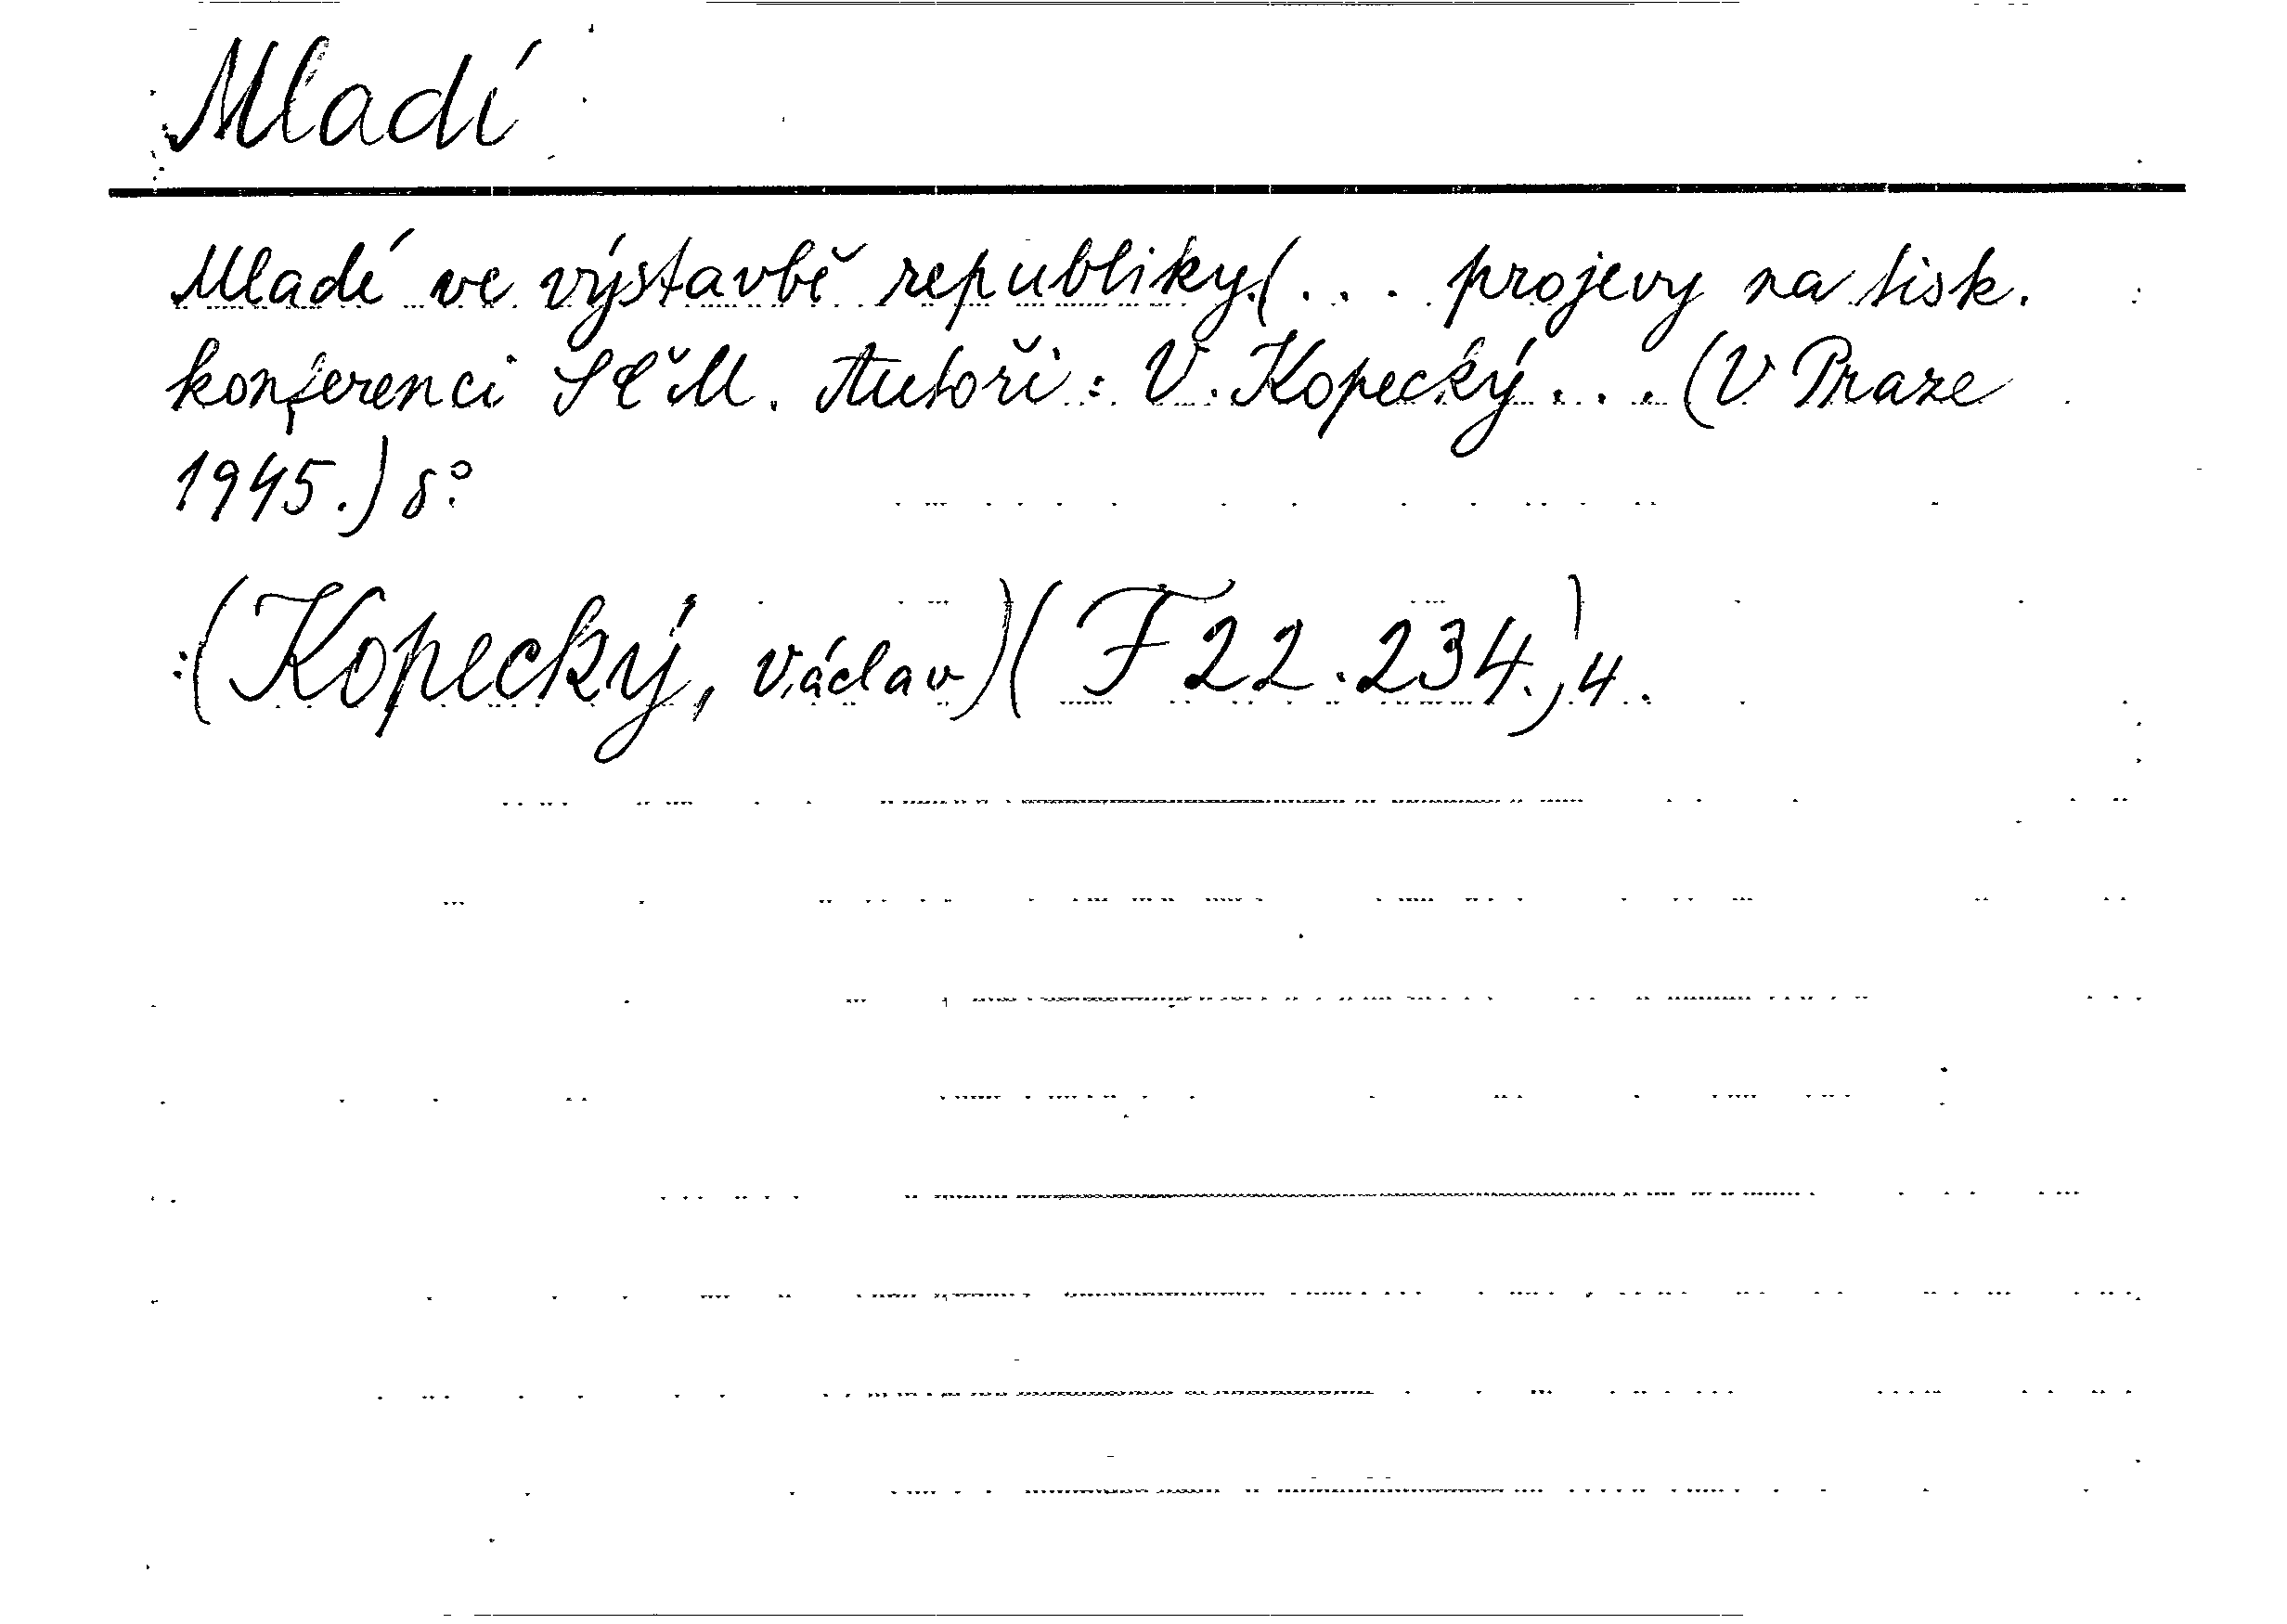 Mladí
Mladí ve výstavbě republiky.(... projevy na tisk.
konferenci SČM. Autoři: V. Kopecký... (V Praze
1945.) 8°.
:(Kopecký, Václav)( F 22.234.,)4.